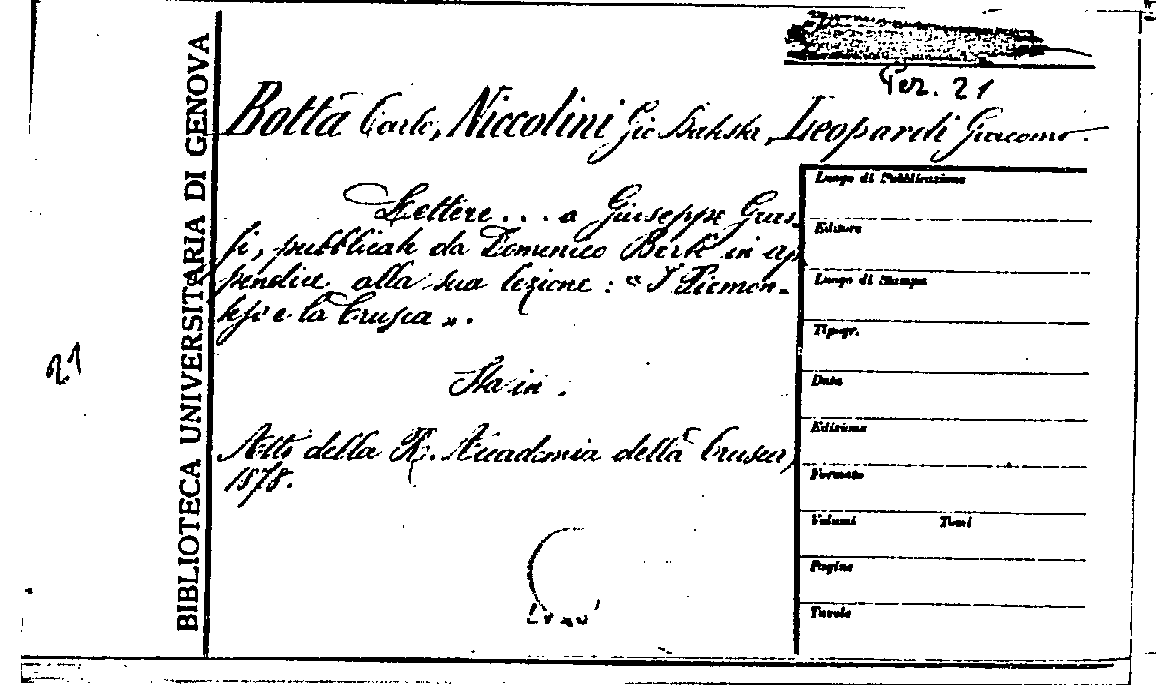 Per. 21
Botta Carlo, Niccolini Gio Batista, Leopardi Giacomo.
Lettere... a Giuseppe Gras-
si, pubblicate da Domenico Berti in ap
pendice alla sua lezione: "I Piemon-
tesi e la Crusca".
Sta in.
Atti della R. Accademia della Crusca,
1878.
21
BIBLIOTECA UNIVERSITARIA DI GENOVA
Luogo di Pubblicazione
Editore
Luogo di Stampa
Tipogr.
Data
Edizione
Formato
Volumi Tomi
Pagine
Tavole